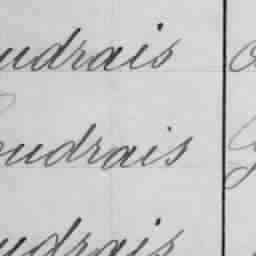 udrais
oudrais
udrais